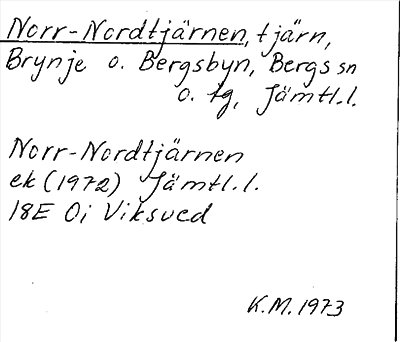 Norr-Nordtjärnen, tjärn,
Brynje o. Bergsbyn, Bergs sn
o. tg, Jämtl.l.
Norr-Nordtjärnen
ek (1972) Jämtl.l.
18E 0i Viksved
K.M. 1973